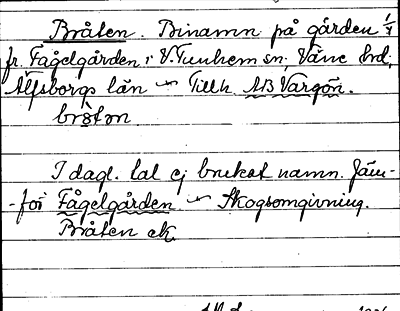 Bråten. Binamn på gården 1/4
fr. Fågelgården i V. Tunhem sn; Väne hd;
Älfsborgs län – Tillh. AB Vargön.
bròton
I dagl. tal ej brukat namn. Jäm-
-för Fågelgården – Skogsomgivning.
Bråten etc